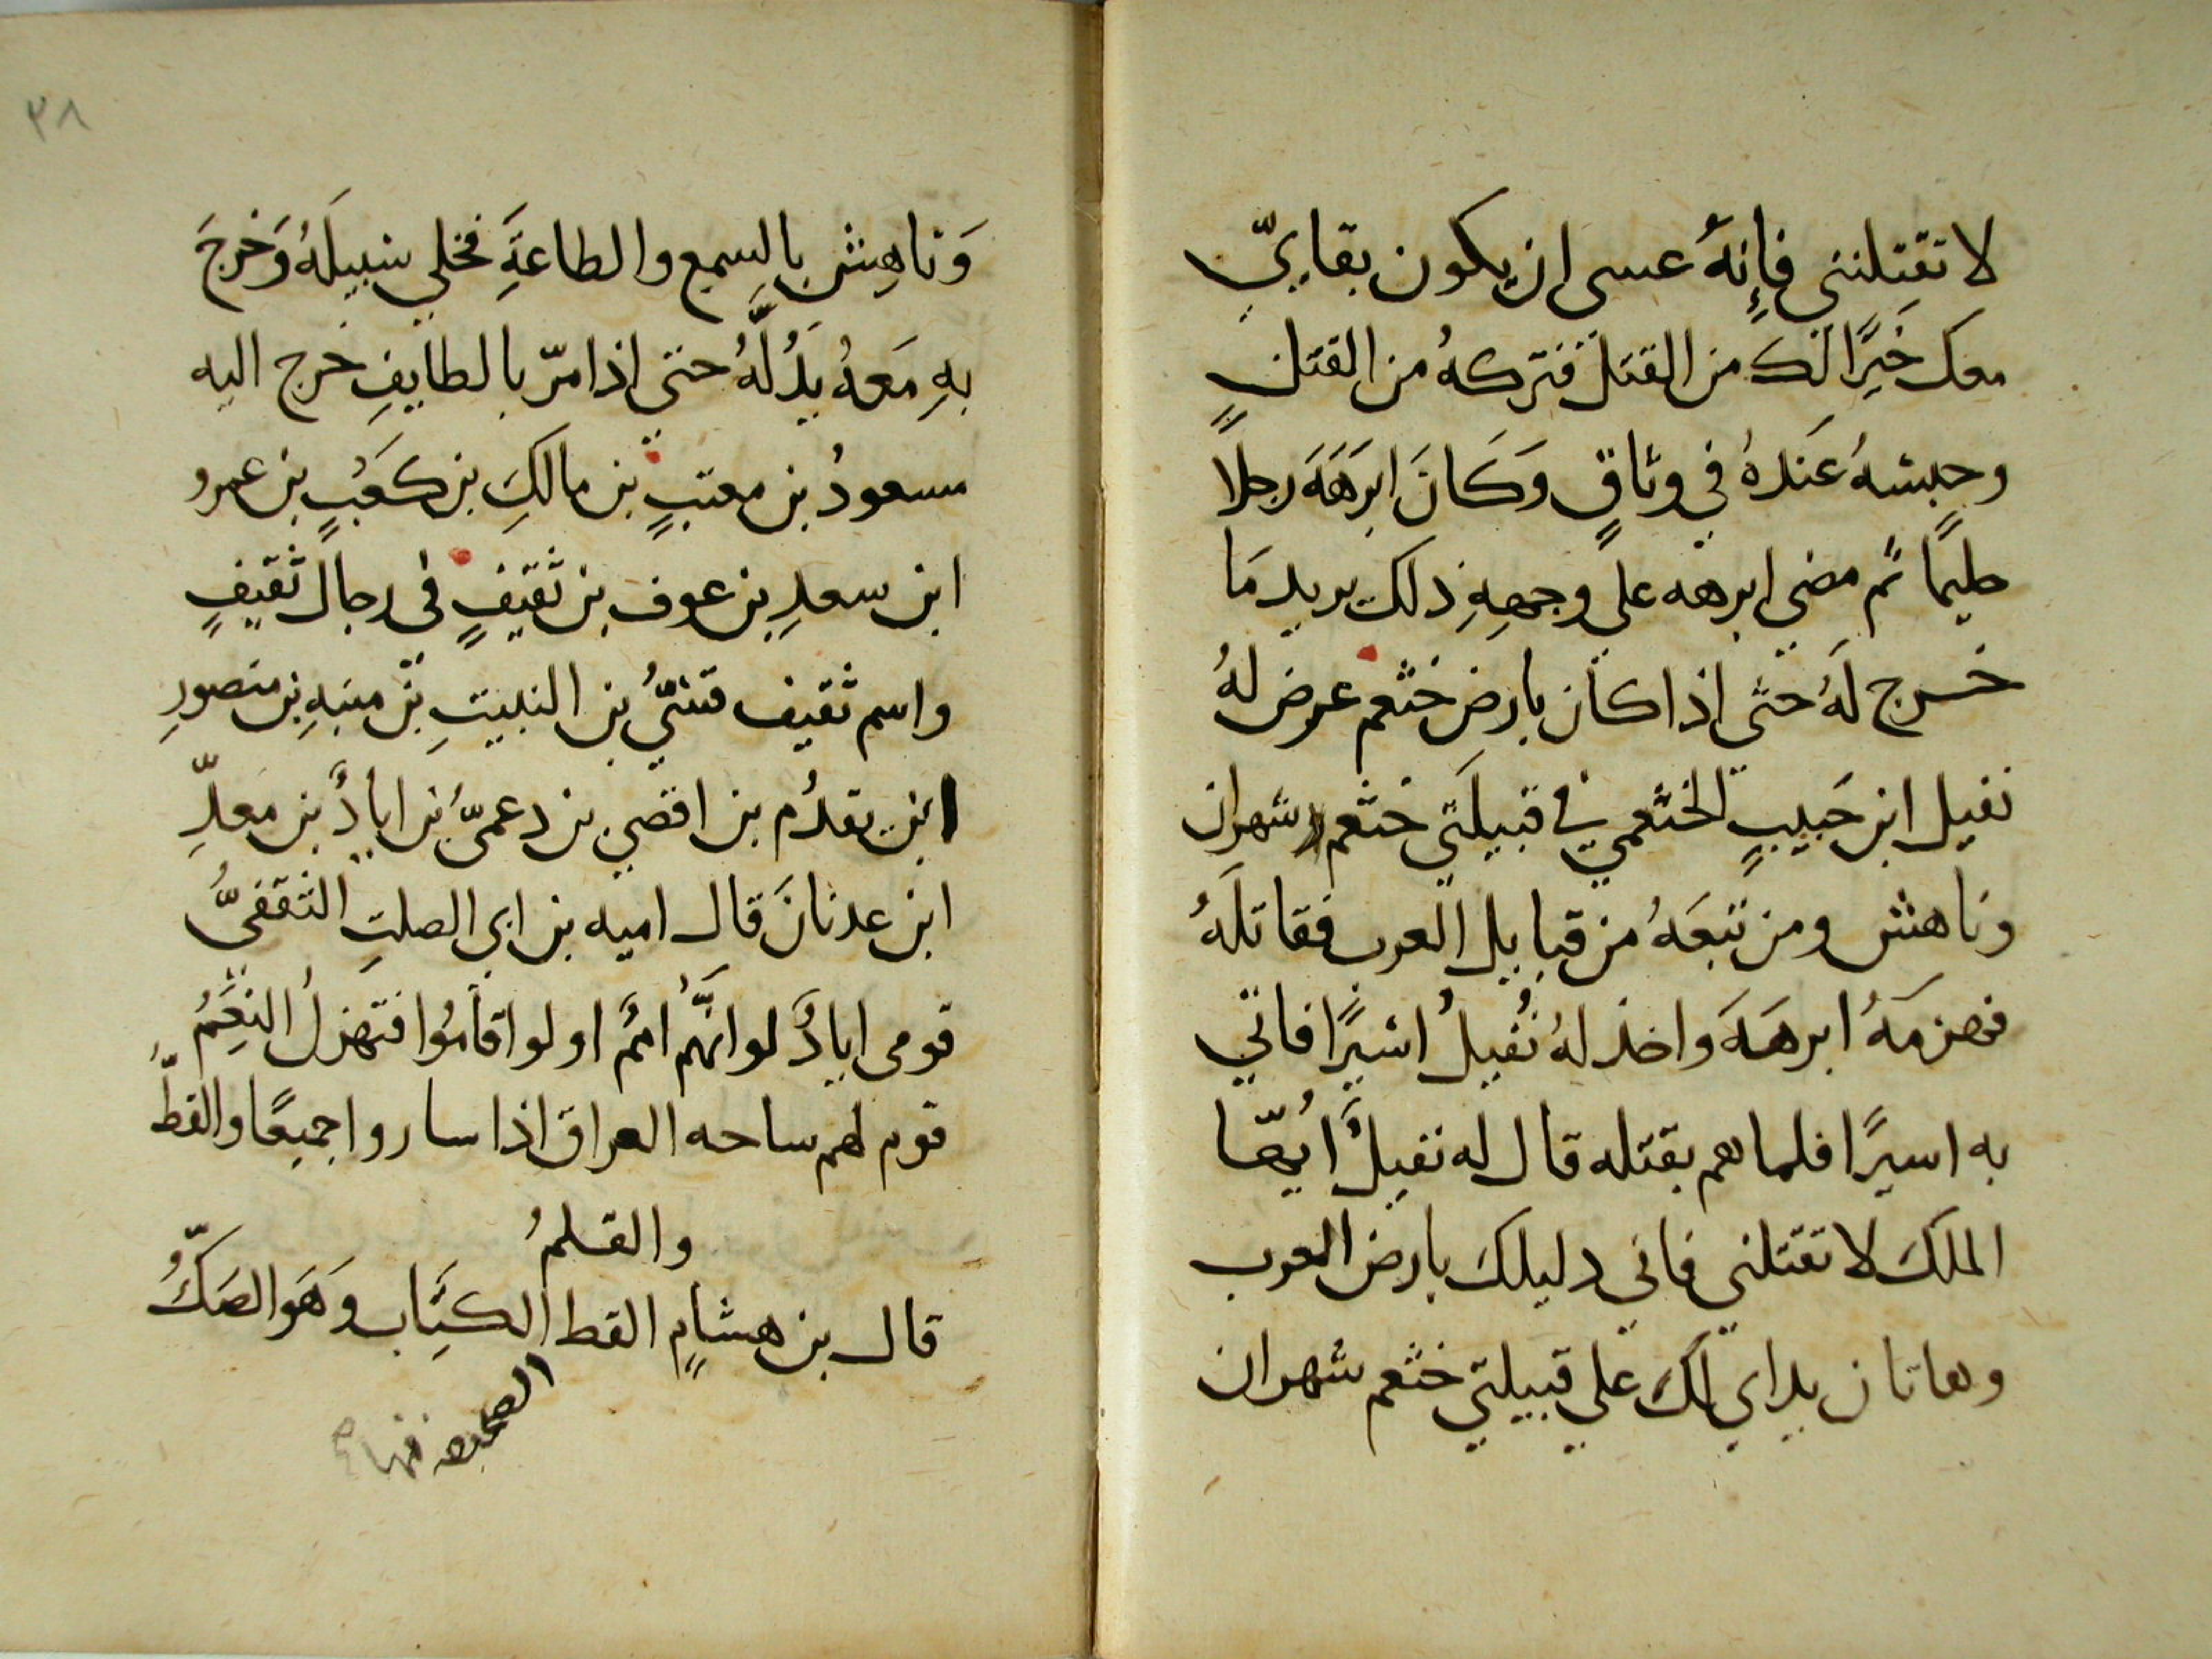 لا تقتلنني فإنهُ عسى ان يكون بقايّ
معك خَيرًا لك من القتل فتركهُ من القتل
وحبسهُ عندهُ في وثاقٍ وَكَانَ ابرَهَهَ رجلاً
حليمًا ثم مضي ابرهه علي وجههِ ذلك يريد مَا
خرج لَهُ حتي اذا كان بارض خثعم عرض لهُ
نفيل ابن حَبيبٍ الخثعمي في قبيلَتي خثعم شهران
وناهش ومن تبعَهُ من قبايل العرب فقاتلَهُ
فهزمَهُ ابرهَهَ واخذ لهُ نُفيلُ اسيرًا فاتي
به اسيرًا فلما هم بقتله قال له نفيلُ ايُّها
الملكَ لا تقتلني فاني دليلكَ بارض العرب
وهاتان يداي لكَ علي قبيلتي خثعم شهران
٣٨
وَناهِش بالسِمع والطاعَةِ فخلي سَبيلَهُ وَخرجَ
بهِ مَعهُ يَدُلَّهُ حتي اذا مرّ بالطايفِ خرج اليه
مسعودُ بن معتبٍ بن مالكِ بن كعَبٍ بن عمرو
ابن سعدِ بن عوف بن ثقيفٍ في رجال ثقيفٍ
واسم ثقيف قسّيُ بن النبيتِ بن منبهِ بن منصورِ
ابن يقدُم بن افصي بن دعميّ بن ايادُ بن معدِّ
ابن عدنانَ قال اميه بن ابي الصلتِ الثقفيُّ
قومي ايادُ لو انَّهُم امم او لو اقامُوا فتهزلُ النِعَمُ
قوم لهم ساحه العراق اذا ساروا جميعًا والقطُّ
والقلمُ
قال بن هشامٍ القط الكِتَاب وَهَوَ الصَكُّ
الصحيفه